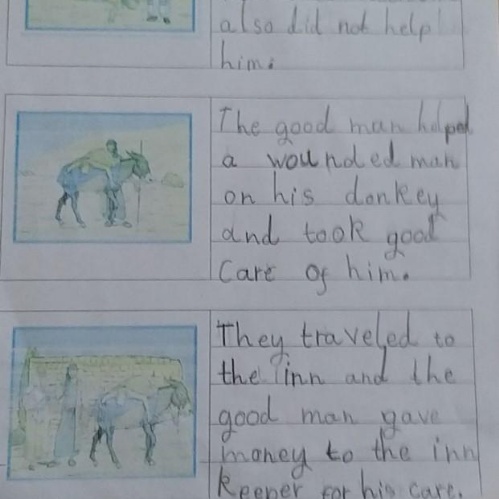 also did not help
him.
The good man helped
a wounded man
on his donkey
and took good
care of him.
They traveled to
the inn and the
good man gave
money to the inn
keeper for his care.